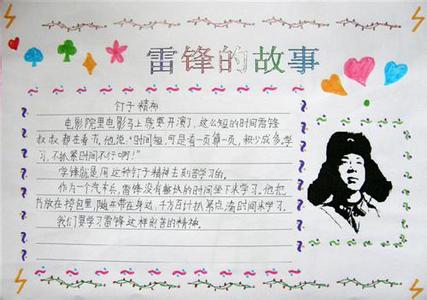 雷锋的故事
钉子精神
电影院里电影马上就要开演了,这么短的时间雷锋
叔叔都在看书,他说:“时间短,可是看一页算一页,积少成多,学
习,不抓紧时间不行啊!”
学锋就是用这种钉子精神去刻苦学习的。
作为一个汽车兵,雷锋没有整块的时间坐下来学习。他把
书放在挎包里,随身带在身边,千方百计抓紧点滴时间来学习。
我们要学习雷锋这样刻苦的精神。